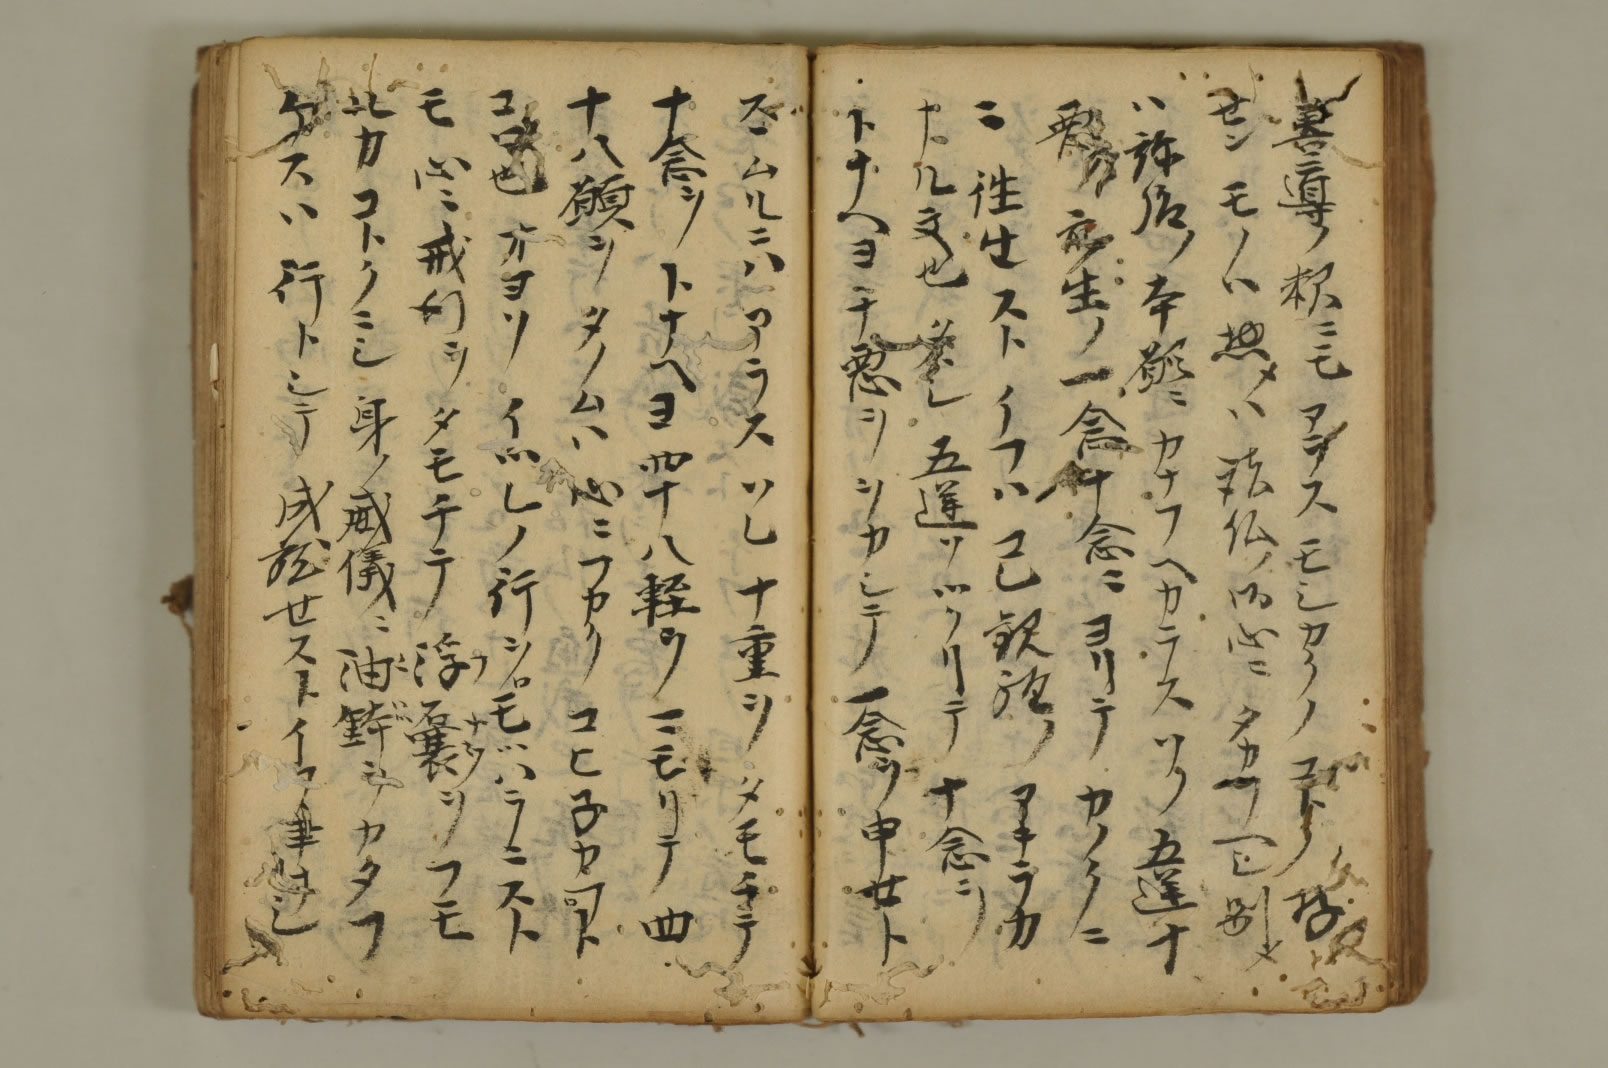 善導ノ釈ニモアラスモシカクノコトク
セン モノハ惣メハ諸仏ノ御心ニタカフヘシ別メ
ハ弥陀ノ本願ニカナフヘカラスソノ五逆十
悪ノ衆生ノ一念十念ニヨリテカノクニ
ニ往生ストイフハコレ観経ノアキラカ
ナル文也 タヽシ五逆ヲツクリテ十念ヲ
トナヘヨ十悪ヲヲカシテ一念ヲ申セト
スヽムルニハアラスソレ十重ヲタモチテ
十念ヲトナヘヨ四十八軽ヲマモリテ四
十八願ヲタノムハ心ニフカクコヒネカフト
コロ也 オヨソイツレノ行ヲモハラニスト
モ心ニ戒行ヲタモチテ浮囊ヲフモ
ルカコトクニシ身ノ威儀ニ油鉢ヲカタフ
ケスハ行トシテ成就セストイフ事ナシ